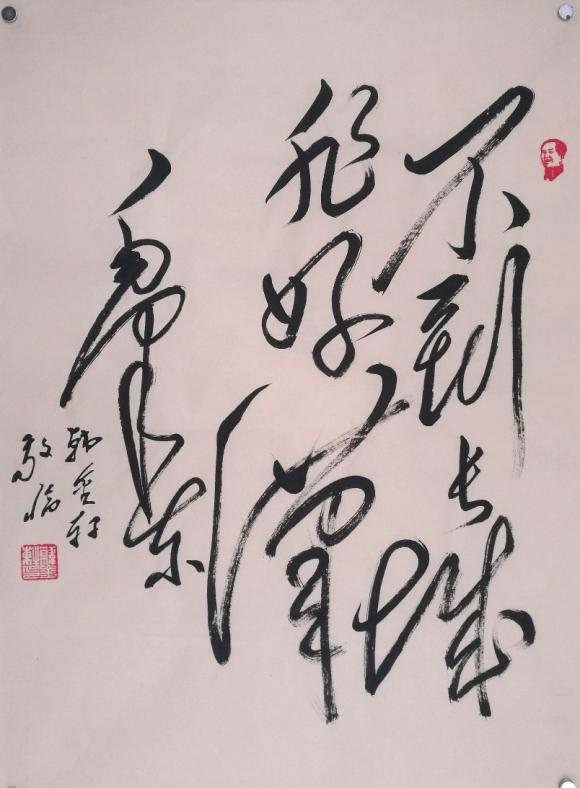 不到长城
非好漢
毛泽东
韩金轩
敬临